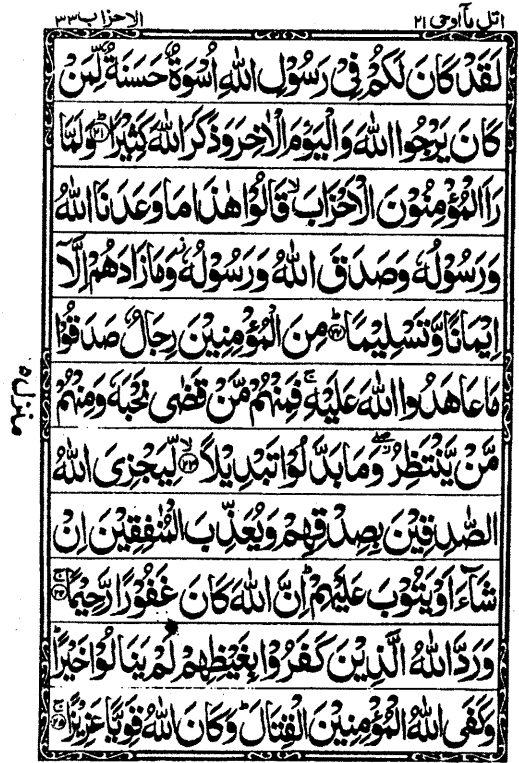 اتل ماۤ اوحی ۲۱
الاحزاب ۳۳
لَقَدْ كَانَ لَكُمْ فِیْ رَسُوْلِ اللّٰهِ اُسْوَةٌ حَسَنَةٌ لِّمَنْ
كَانَ یَرْجُوا اللّٰهَ وَالْیَوْمَ الْاٰخِرَ وَذَكَرَ اللّٰهَ كَثِیْرًا ؕ﴿۲۱﴾ وَلَمَّا
رَاَ الْمُؤْمِنُوْنَ الْاَحْزَابَ ۙ قَالُوْا هٰذَا مَا وَعَدَنَا اللّٰهُ
وَرَسُوْلُهٗ وَصَدَقَ اللّٰهُ وَرَسُوْلُهٗ ؗ وَمَا زَادَهُمْ اِلَّاۤ
اِیْمَانًا وَّتَسْلِیْمًا ؕ﴿۲۲﴾ مِنَ الْمُؤْمِنِیْنَ رِجَالٌ صَدَقُوْا
مَا عَاهَدُوا اللّٰهَ عَلَیْهِ ۚ فَمِنْهُمْ مَّنْ قَضٰی نَحْبَهٗ وَمِنْهُمْ
مَّنْ یَّنْتَظِرُ ۖ وَمَا بَدَّلُوْا تَبْدِیْلًا ۙ﴿۲۳﴾ لِّیَجْزِیَ اللّٰهُ
الصّٰدِقِیْنَ بِصِدْقِهِمْ وَیُعَذِّبَ الْمُنٰفِقِیْنَ اِنْ
شَآءَ اَوْ یَتُوْبَ عَلَیْهِمْ ؕ اِنَّ اللّٰهَ كَانَ غَفُوْرًا رَّحِیْمًا ۚ﴿۲۴﴾
وَرَدَّ اللّٰهُ الَّذِیْنَ كَفَرُوْا بِغَیْظِهِمْ لَمْ یَنَالُوْا خَیْرًا ؕ
وَكَفَی اللّٰهُ الْمُؤْمِنِیْنَ الْقِتَالَ ؕ وَكَانَ اللّٰهُ قَوِیًّا عَزِیْزًا ۚ﴿۲۵﴾
منزل ۵